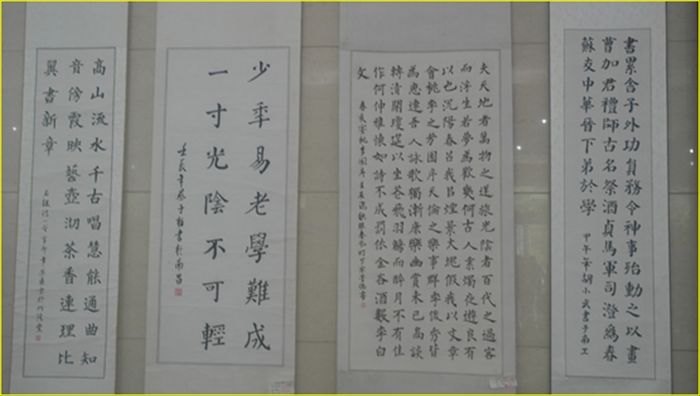 書累舍子外功貟務令神事殆動之以畫
曹加君禮師古名祭酒貞馬軍司澄爲春
蘇文中華晉下弟於學
夫天地者萬物之逆旅光陰者百代之過客
而浮生若夢為歡幾何古人秉燭夜遊良有
以也況陽春召我以煙景大塊假我以文章
會桃李之芳園序天倫之樂事群季俊秀皆
為惠連吾人詠歌獨漸康樂幽賞未已高談
轉清開瓊筵以坐花飛羽觴而醉月不有佳
作何伸雅懷如詩不成罰依金谷酒數李白
文
少年易老學難成
一寸光陰不可輕
高山流水千古唱慧能通曲知
音傍霞映藝壺沏茶香連理比
翼書新章